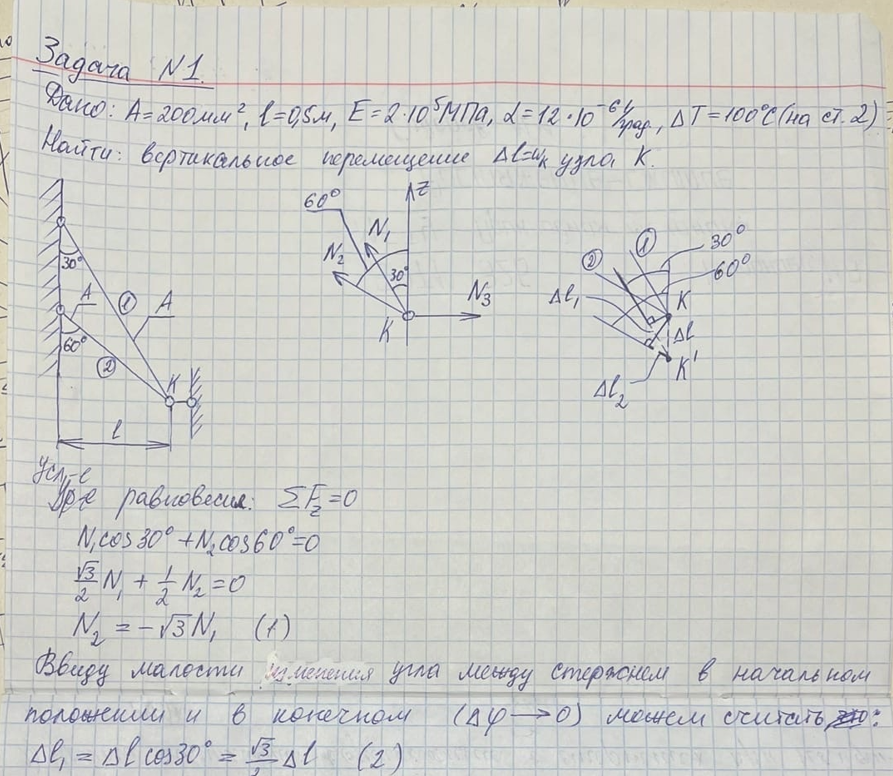 Задача N1.
Дано: A=200мм², l=0,5м, E=2·10⁵МПа, α=12·10⁻⁶ 1/град, ΔT=100°C (на ст. 2)
Найти: вертикальное перемещение Δl=u_k узла K.
30°
A
1
A
60°
2
K
l
60°
z
N₂
N₁
30°
K
N₃
2
1
30°
60°
Δl₁
K
Δl
K'
Δl₂
Усл-е
равновесия: ΣF_z=0
N₁cos30° + N₂cos60°=0
√3/2 N₁ + 1/2 N₂ = 0
N₂ = -√3N₁ (1)
Ввиду малости изменения угла между стержнем в начальном
положении и в конечном (Δφ→0) можем считать:
Δl₁ = Δl cos30° = √3/2 Δl (2)